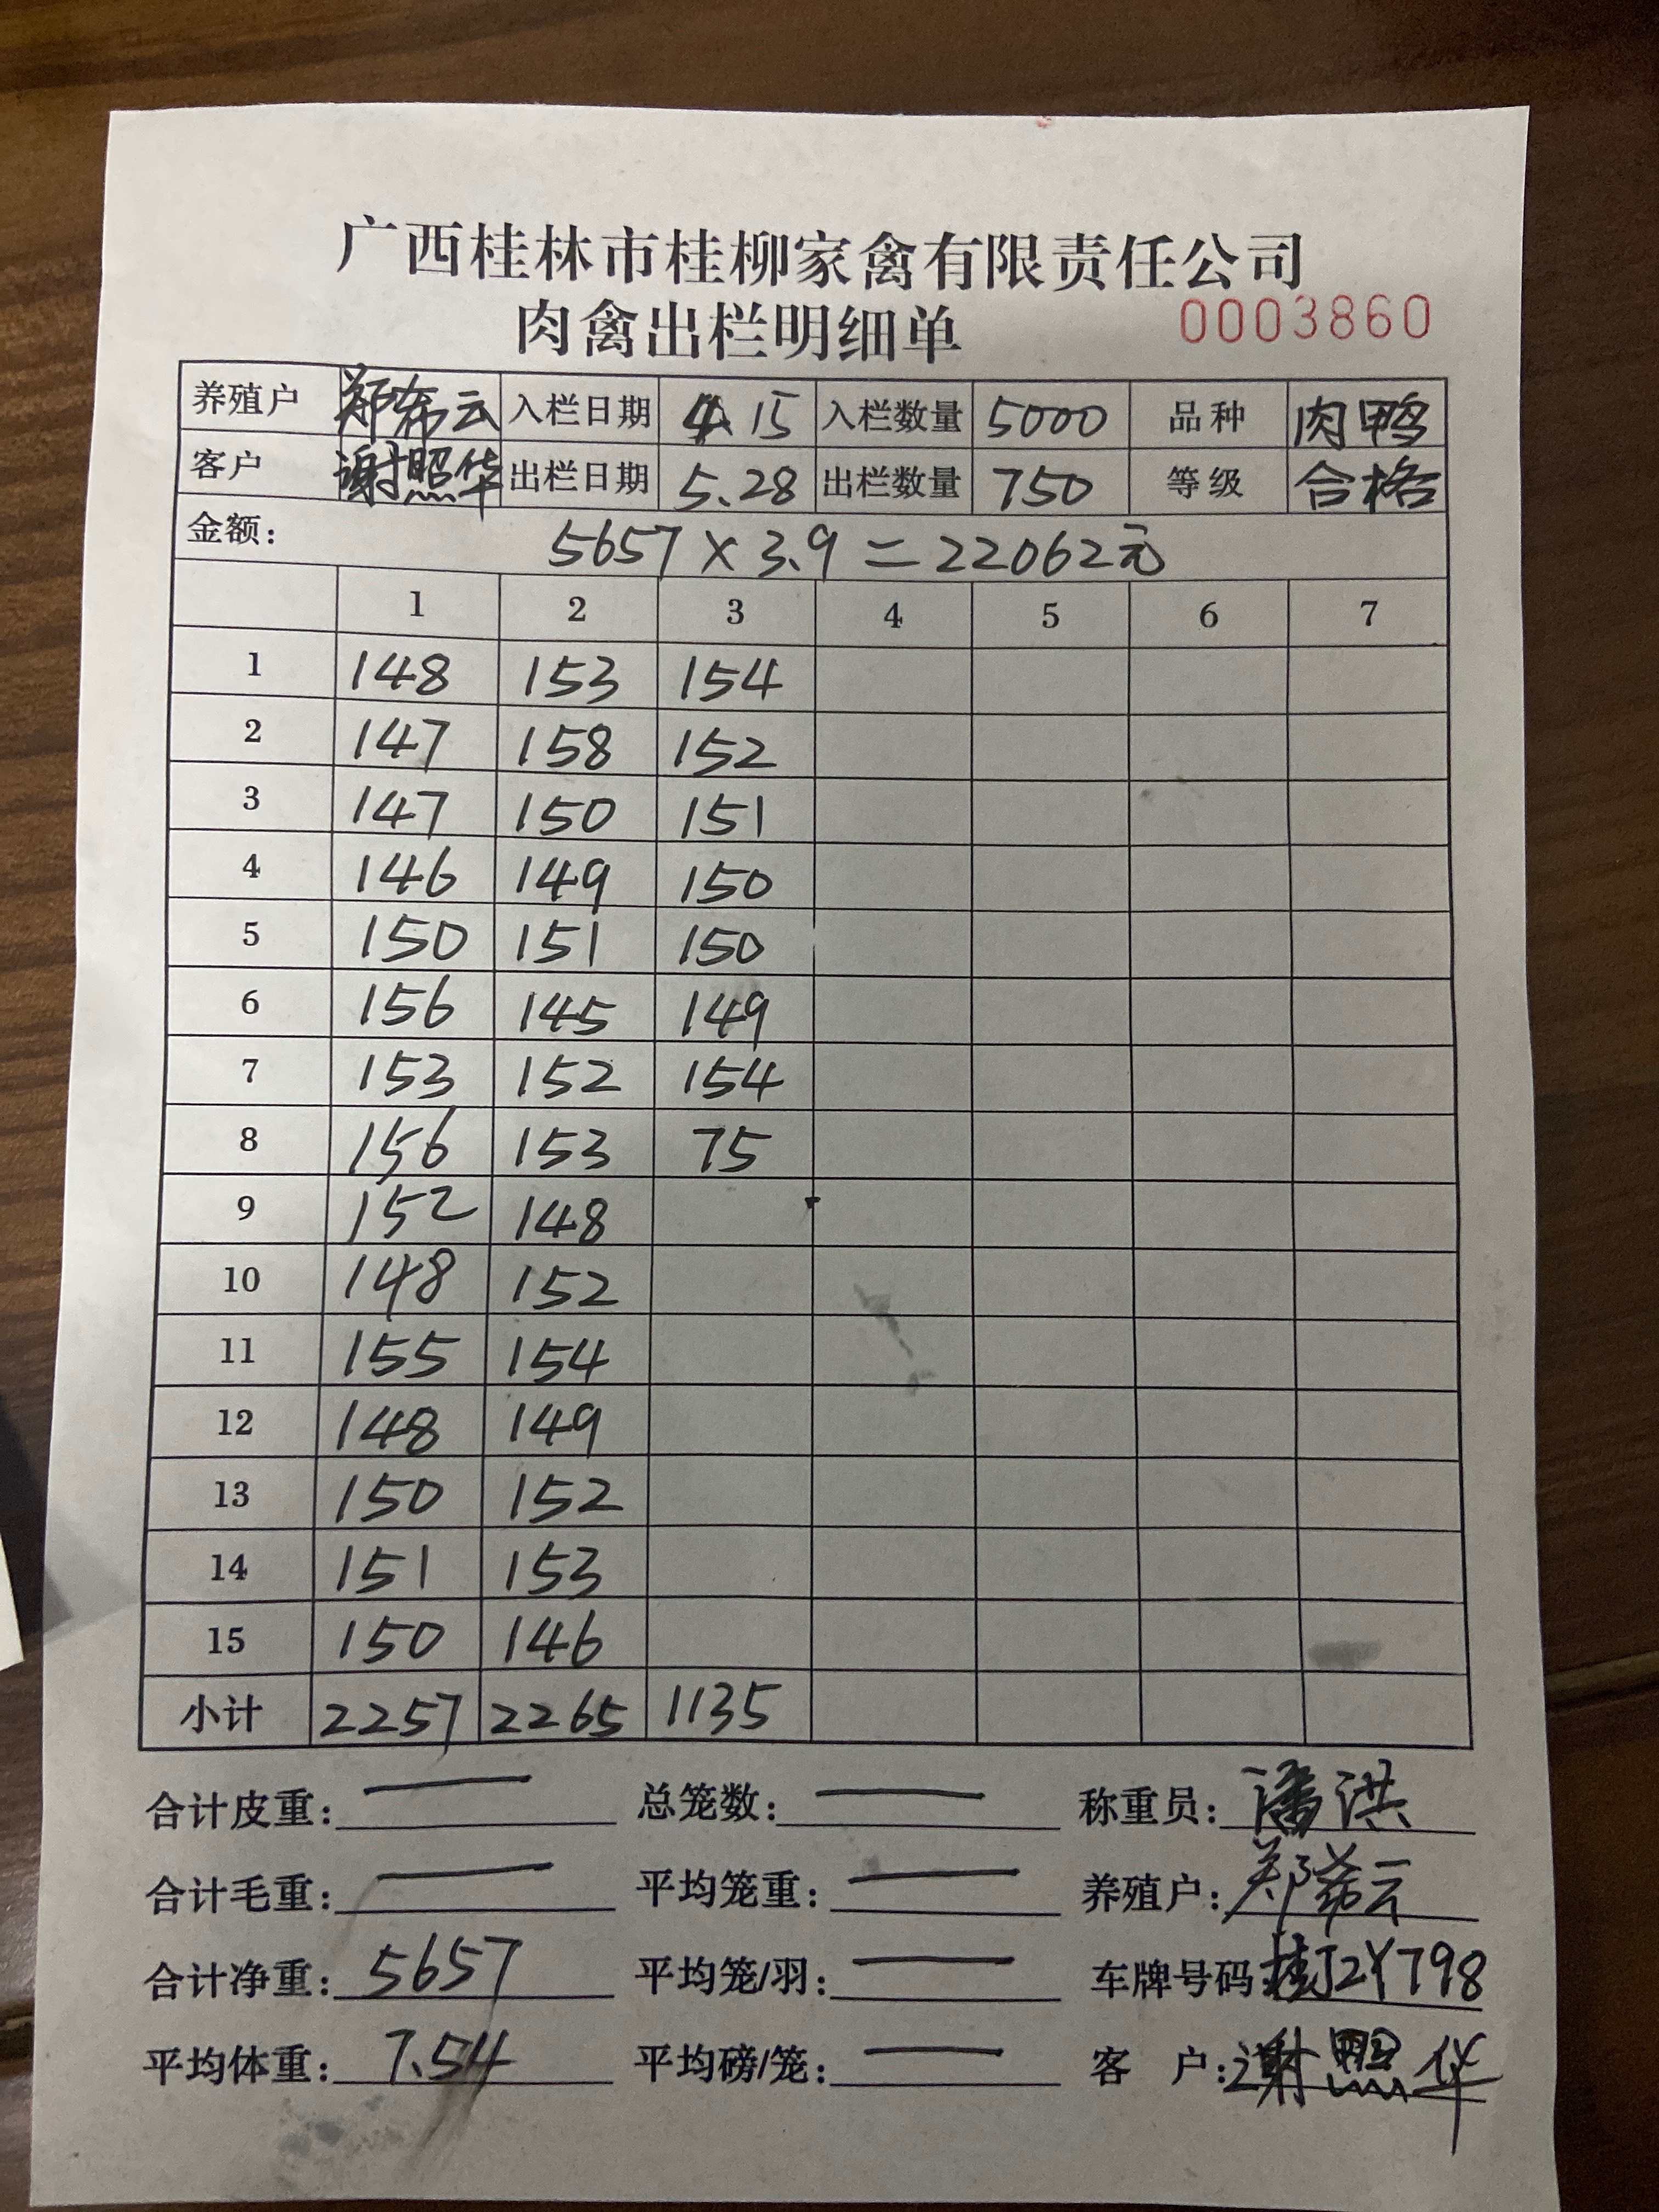 广西桂林市桂柳家禽有限责任公司
肉禽出栏明细单 0003860
养殖户 郑希云 入栏日期 4.15 入栏数量 5000 品种 肉鸭
客户 谢照华 出栏日期 5.28 出栏数量 750 等级 合格
金额: 5657×3.9=22062元
1 2 3 4 5 6 7
1 148 153 154
2 147 158 152
3 147 150 151
4 146 149 150
5 150 151 150
6 156 145 149
7 153 152 154
8 156 153 75
9 152 148
10 148 152
11 155 154
12 148 149
13 150 152
14 151 153
15 150 146
小计 2257 2265 1135
合计皮重: 总笼数: 称重员: 潘洪
合计毛重: 平均笼重: 养殖户: 郑希云
合计净重: 5657 平均笼/羽: 车牌号码: 桂J2Y798
平均体重: 7.54 平均磅/笼: 客 户: 谢照华